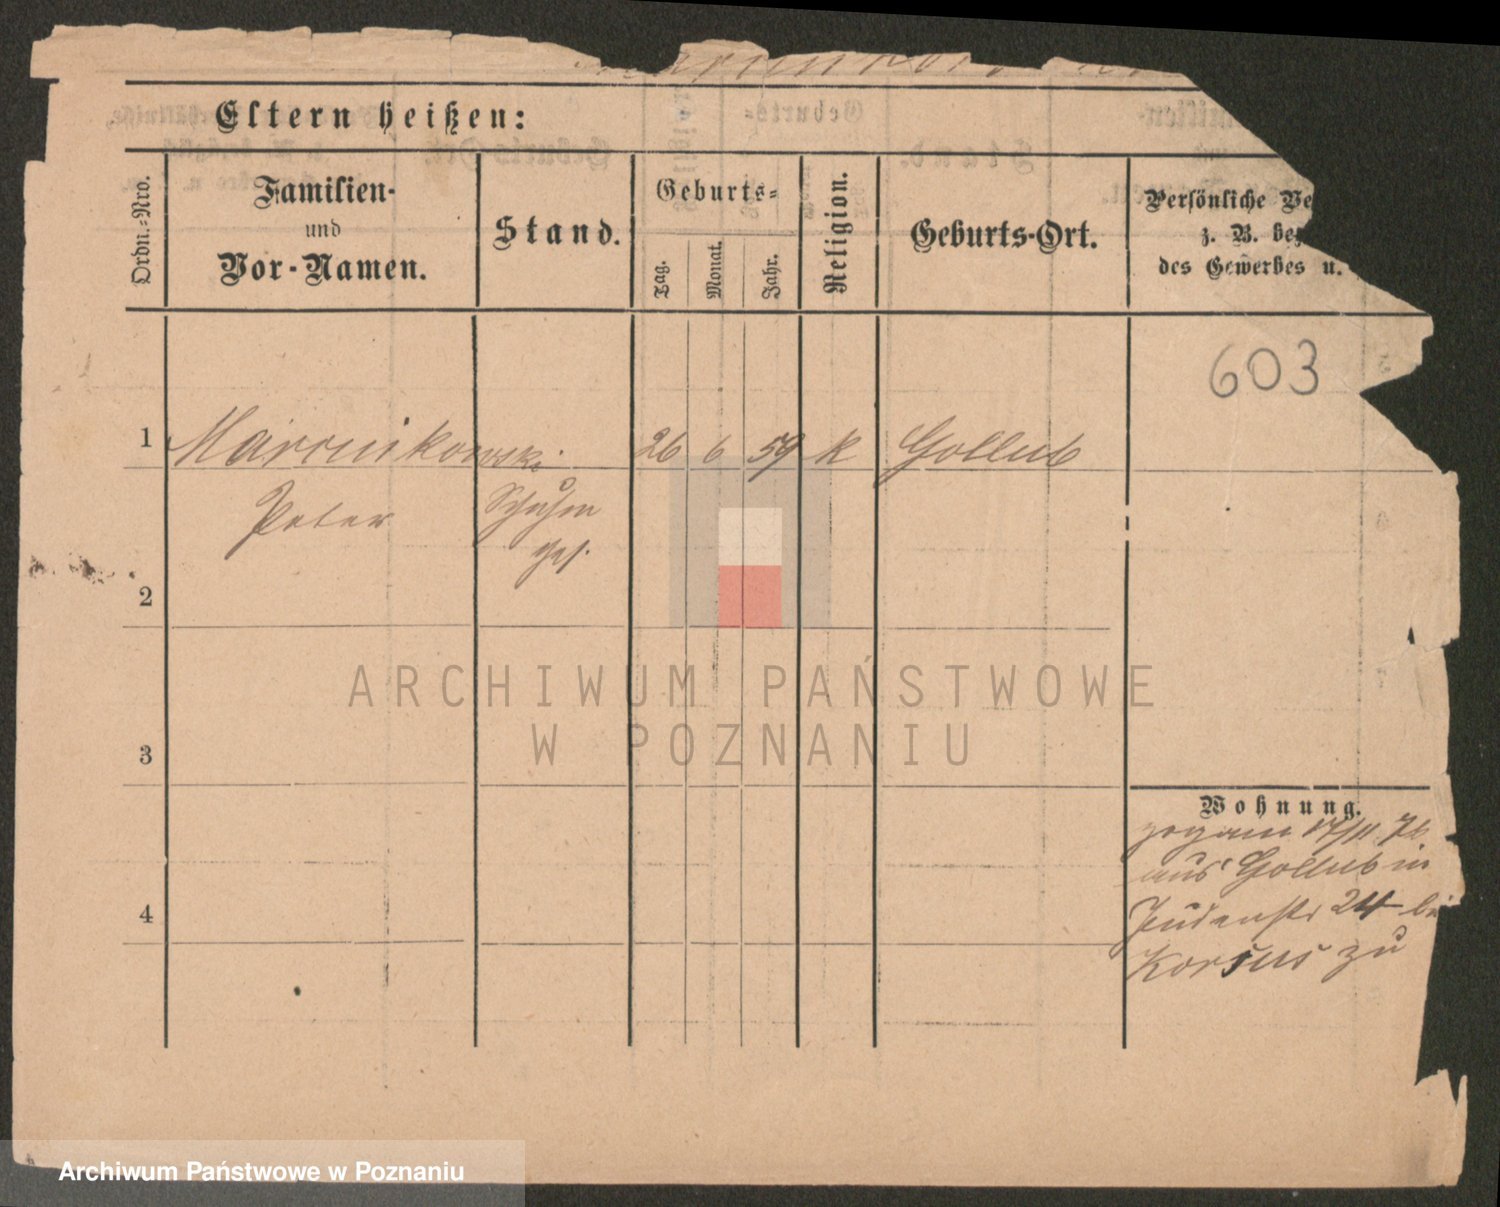 Eltern heißen:
Ordn.-Nro.
Familien-
und
Vor-Namen.
Stand.
Geburts-
Tag.
Monat.
Jahr.
Religion.
Geburts-Ort.
Persönliche Ve
z. B. der
des Gewerbes u.
603
1 Marcinkowski 26 6 59 k Gollub
Peter Schuhm
ges.
2
3
4
Wohnung.
zog am 17/11. 76
aus Gollub in
Judenstr 24 bei
Korsus zu
ARCHIWUM PAŃSTWOWE
W POZNANIU
Archiwum Państwowe w Poznaniu